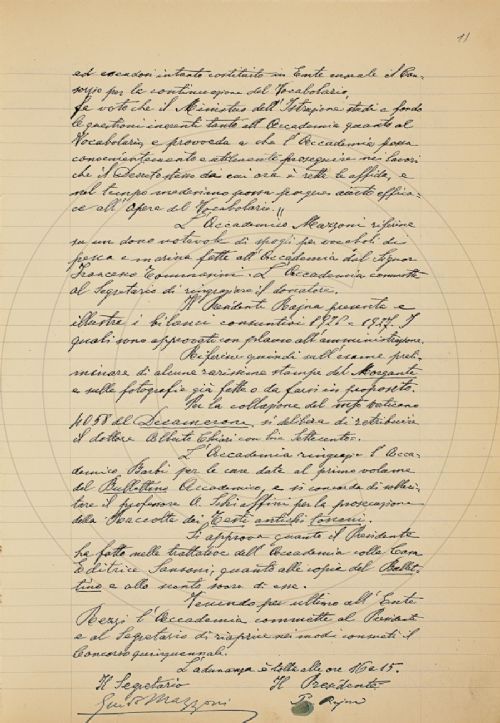 11
ed essendosi intanto costituito in Ente morale il Con-
sorzio per la continuazione del Vocabolario,
fa voto che il Ministro dell'Istruzione studi a fondo
le questioni inerenti tanto all'Accademia quanto al
Vocabolario, e provveda a che l'Accademia possa
convenientemente e utilmente proseguire nei lavori
che il Decreto stesso da cui ora è retta le affida, e
nel tempo medesimo possa porgere aiuto effica-
ce all'opera del Vocabolario."
L'Accademico Mazzoni riferisce
su un dono notevole di spogli per vocaboli di
pesca e marina fatto all'Accademia dal Signor
Francesco Tommasini. L'Accademia commette
al Segretario di ringraziare il donatore.
Il Presidente Rajna presenta e
illustra i bilanci consuntivi 1926 e 1927. I
quali sono approvati con plauso all'amministrazione.
Riferisce quindi sull'esame preli-
minare di alcune rarissime stampe del Morgante
e sulle fotografie già fatte o da farsi in proposito.
Per la collazione del ms. vaticano
4058 del Decamerone, si delibera di retribuire
il dottore Alberto Chiari con lire settecento.
L'Accademia ringrazia l'Acca-
demico Barbi per le cure date al primo volume
del Bullettino Accademico, e si concorda di solleci-
tare il professore A. Schiaffini per la prosecuzione
della Raccolta dei Testi antichi toscani.
Si approva quanto il Presidente
ha fatto nelle trattative dell'Accademia colla Casa
Editrice Sansoni, quanto alle copie del Bullet-
tino e allo sconto sovra di esse.
Venendo per ultimo all'Ente
Rezzi l'Accademia commette al Presidente
e al Segretario di riaprire nei modi consueti il
Concorso quinquennale.
L'adunanza è tolta alle ore 16 e 15.
Il Segretario Il Presidente
Guido Mazzoni P. Rajna